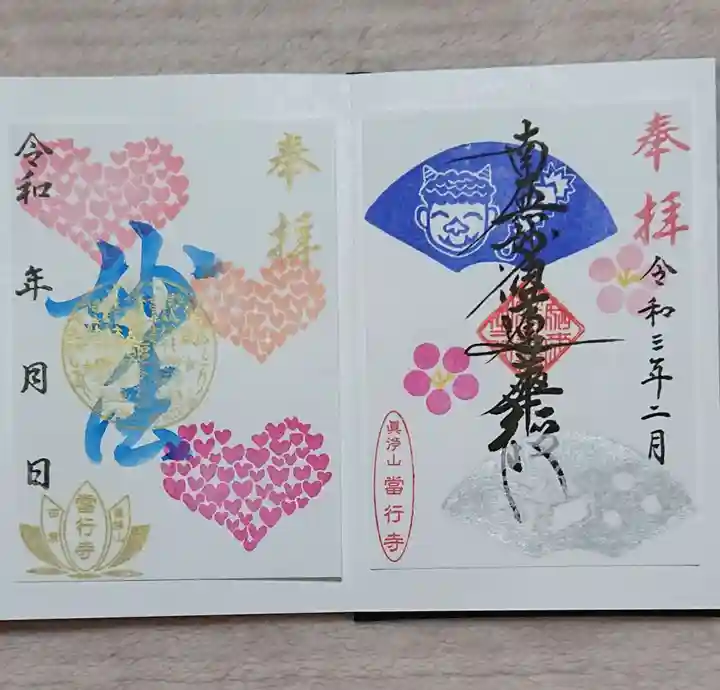 奉拝
令和三年二月
南無妙法蓮華経
眞淨山 當行寺
奉拝
妙法
令和 年 月 日
眞淨山
當行寺